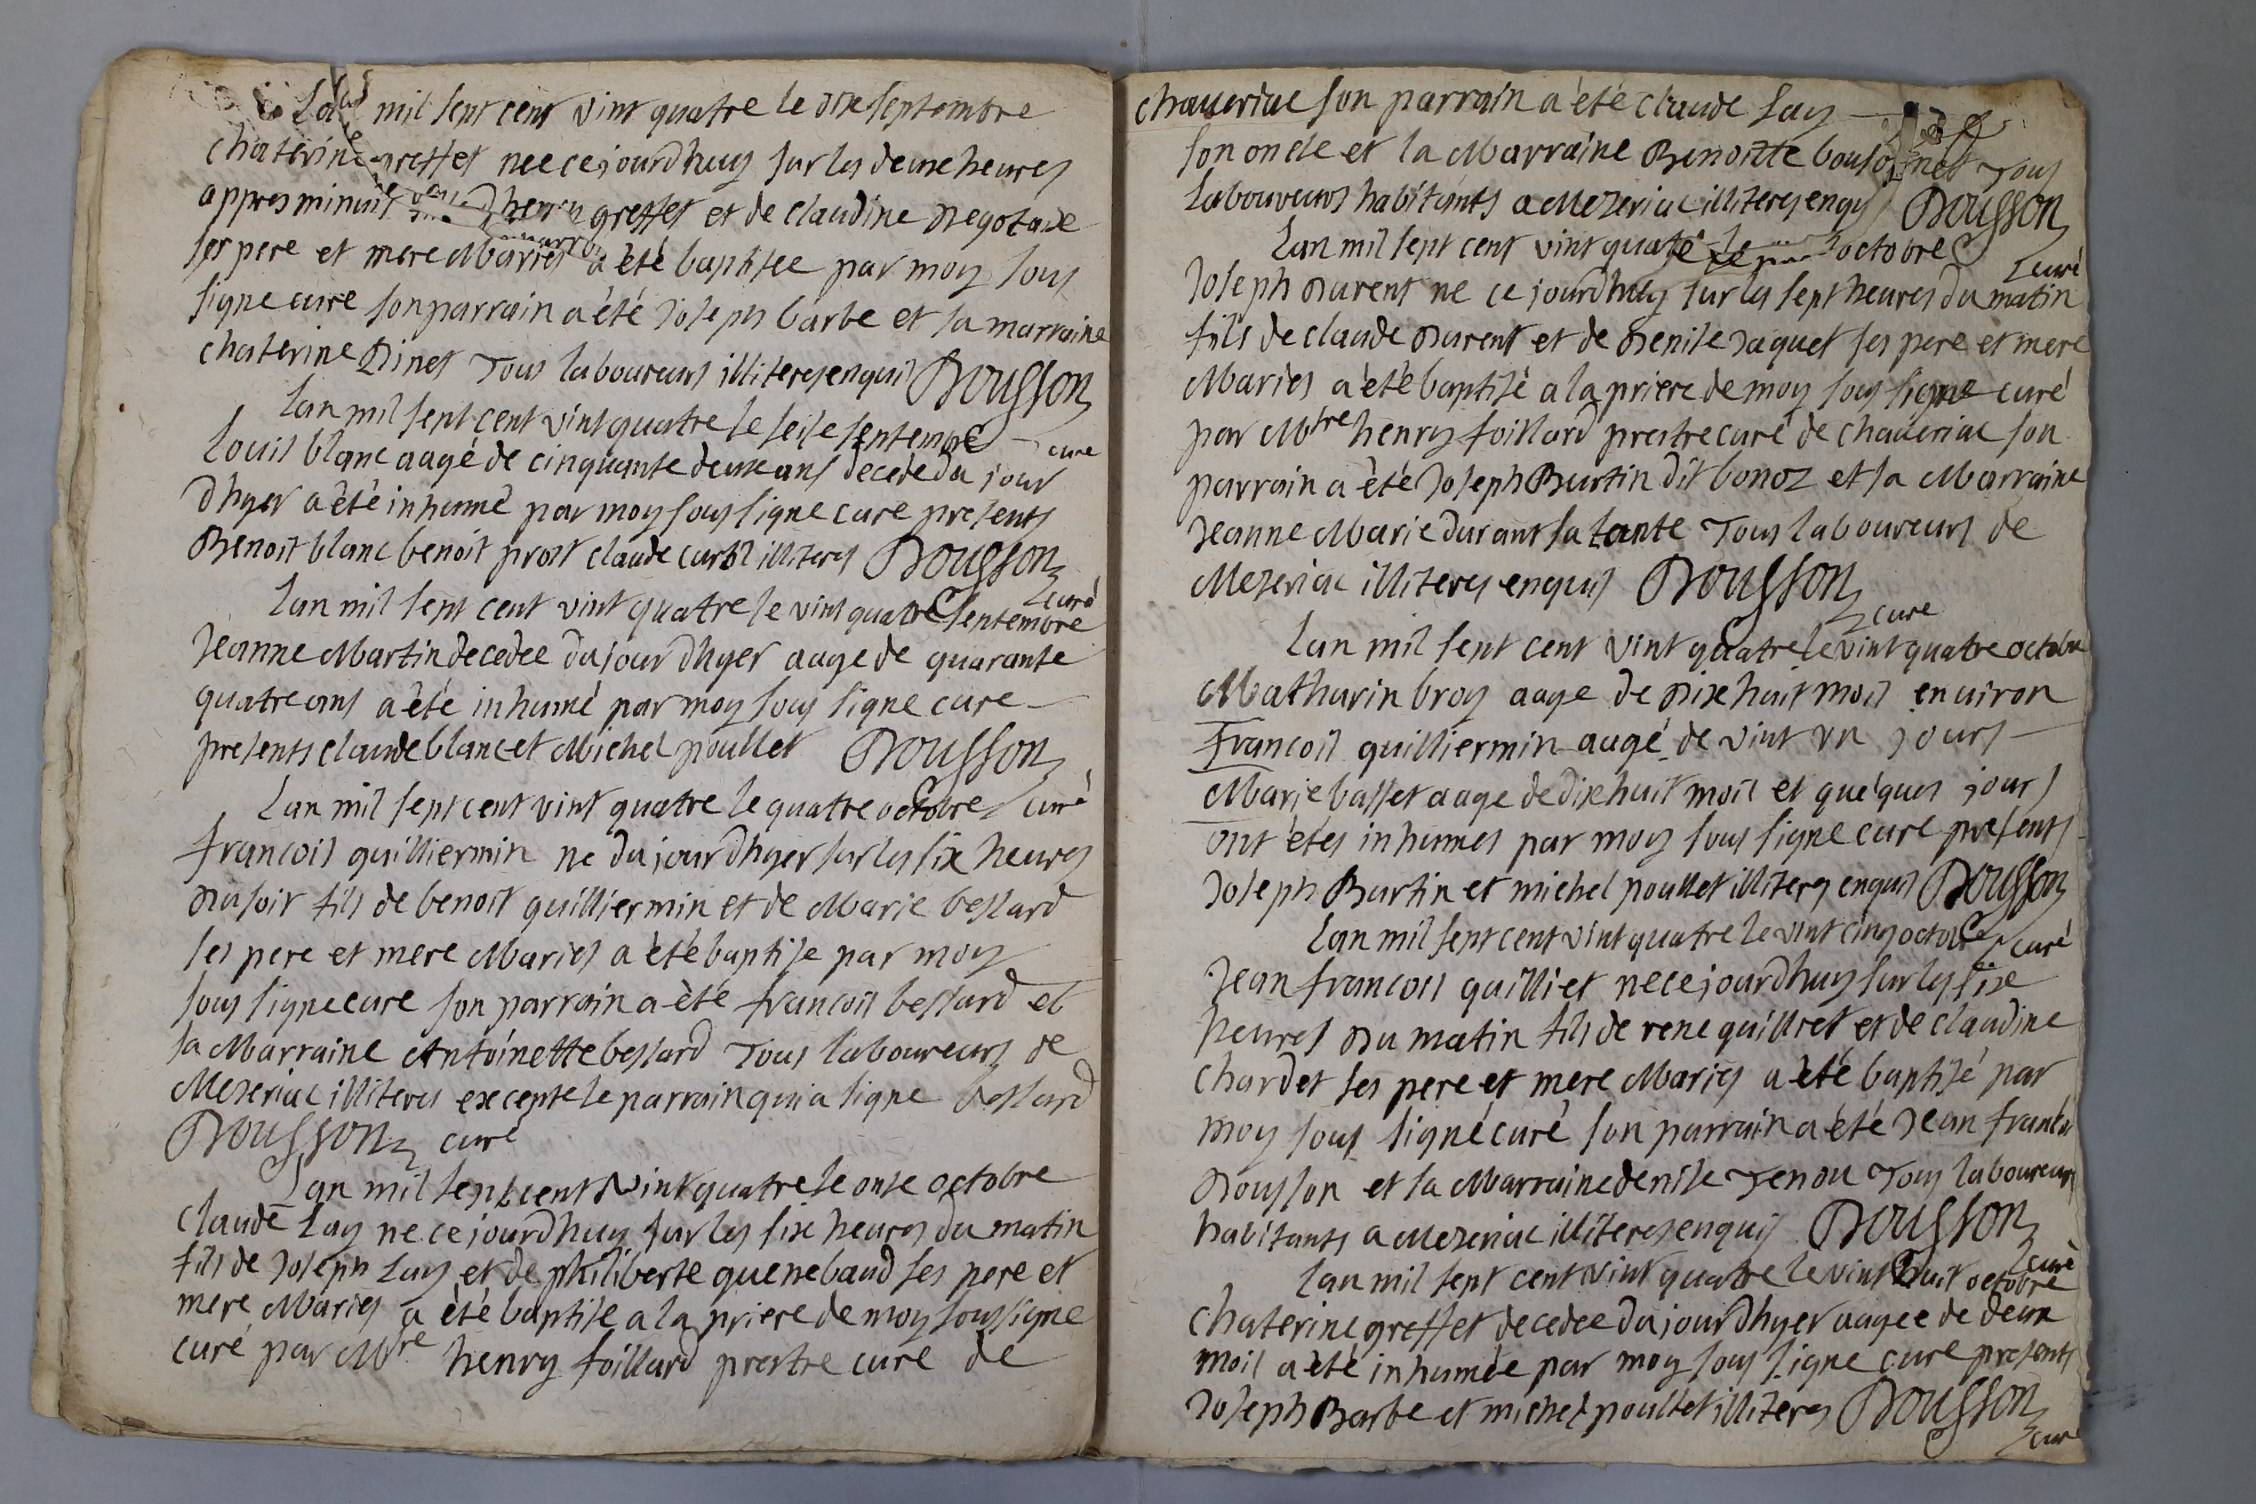 Lan mil sept cent vint quatre le dix septembre
chaterine greffet nee ce jourdhuy sur les deux heures
appres minuit henry greffet et de claudine Degotaxe
ses pere et mere Maries a èté baptisee par moy sous
signe cure son parrain a été Joseph barbe et sa marraine
chaterine Dinet Tous laboureurs illiteres enquis Dousson
cure
Lan mil sept cent vint quatre le seise septembre
Louis blanc aagé de cinquante deux ans decede du jour
dhyer a èté inhumè par moy sous signe cure presents
Benoit blanc benoit prost claude curtil illiteres Dousson
curé
Lan mil sept cent vint quatre le vint quatre septembre
Jeanne Martin decedee du jour dhyer aage de quarante
quatre ans a èté inhumé par moy sous signe cure
presents claude blanc et Michel poullet Dousson
curé
Lan mil sept cent vint quatre le quatre octobre
francois quilliermin ne du jour dhyer sur les six heures
du soir fils de benoit quilliermin et de Marie bessard
ses pere et mere Maries a èté baptise par moy
sous signe cure son parrain a èté francois bessard et
sa Marraine Antoinette bessard Tous laboureurs de
Meseriac illiteres excepte le parrain qui a signe bessard
Dousson curé
Lan mil sept cent vint quatre le onse octobre
claude Lay ne ce jourdhuy sur les six heures du matin
fils de Joseph Lay et de philiberte quenebaud ses pere et
mere Maries a èté baptise a la priere de moy sous signe
curé par Mtre henry foillard prestre cure de
chaveriac son parrain a èté claude Lay
son oncle et la Marraine Benoitte bousonnet Tous
laboureurs habitants a Meseriac illiteres enquis Dousson
curé
Lan mil sept cent vint quatre octobre
Joseph Durent ne ce jourdhuy sur les sept heures du matin
fils de claude Durent et de Denise Jaquet ses pere et mere
Maries a èté baptisé a la priere de moy sous signe curé
par Mtre henry foillard prestre curé de chaveriac son
parrain a èté Joseph Burtin dit bonoz et sa Marraine
Jeanne Marie durant sa tante Tous laboureurs de
Meseriac illiteres enquis Dousson
cure
Lan mil sept cent vint quatre le vint quatre octobre
Mathurin broy aage de dix huit mois environ
francois quilliermin aagé de vint un jours
Marie basset aage de dix huit mois et queques jours
ont étés inhumes par moy sous signe cure presents
Joseph Burtin et michel poullet illiteres enquis Dousson
curé
Lan mil sept cent vint quatre le vint cinq octobre
Jean francois quilliet ne ce jourdhuy sur les six
heures du matin fils de rene quilliet et de claudine
chardet ses pere et mere Maries a èté baptisé par
moy sous signé curé son parrain a été Jean francois
Dousson et sa Marraine denise Tenou Tous laboureurs
habitants a Meseriac illiteres enquis Dousson
curé
Lan mil sept cent vint quatre le vint huit octobre
chaterine greffet decedee du jour dhyer aagee de deux
mois a èté inhumée par moy sous signe cure presents
Joseph Barbe et michel poullet illiteres Dousson
cure